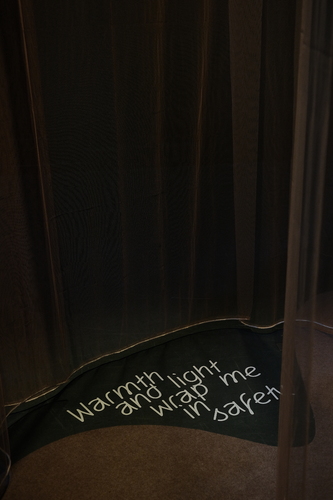 Warmth
and light
wrap me
in safety